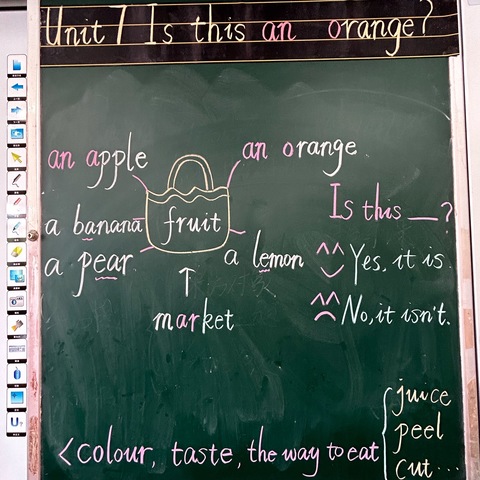 Unit 7 Is this an orange?
an apple
an orange
a banana
fruit
a pear
a lemon
market
Is this __?
Yes, it is
No, it isn't.
<colour, taste, the way to eat
juice
peel
cut...